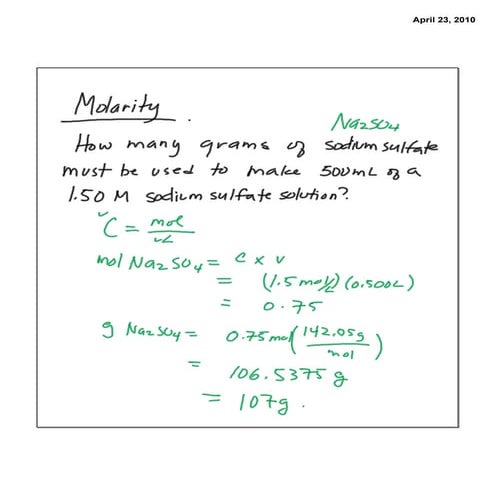 April 23, 2010
Molarity.
Na2SO4
How many grams of sodium sulfate
must be used to make 500mL of a
1.50 M sodium sulfate solution?
C = mol/L
mol Na2SO4 = C x V
= (1.5 mol/L)(0.500L)
= 0.75
g Na2SO4 = 0.75mol(142.05g/mol)
= 106.5375 g
= 107g.